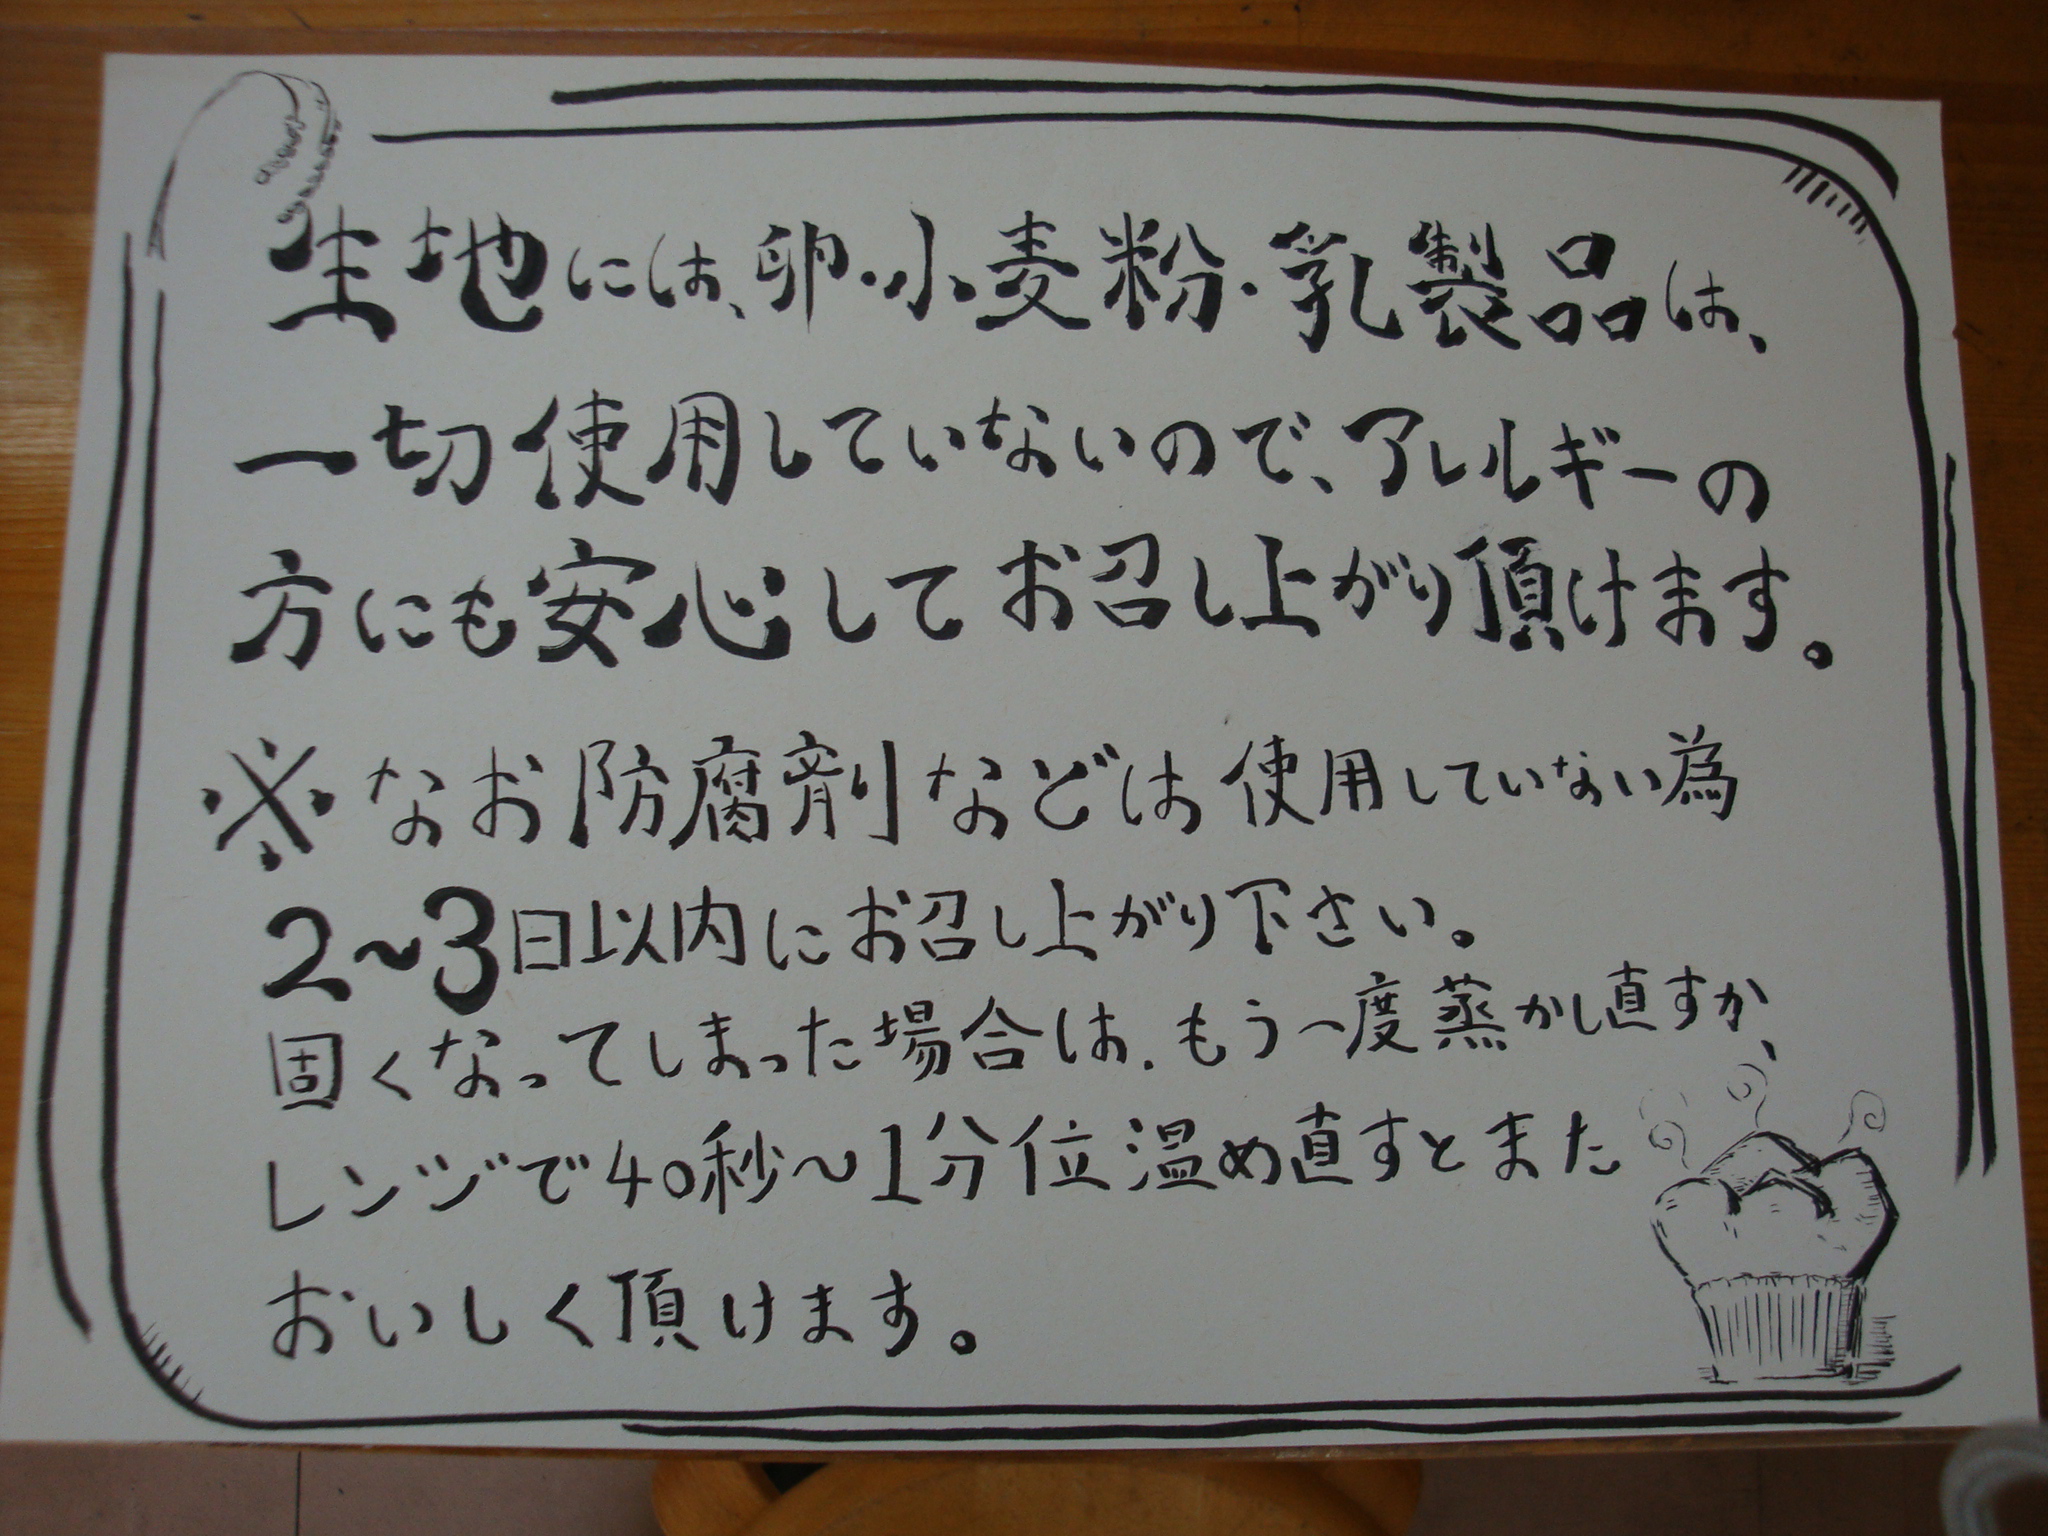 生地には、卵・小麦粉・乳製品は、
一切使用していないので、アレルギーの
方にも安心してお召し上がり頂けます。
※なお防腐剤などは使用していない為
2〜3日以内にお召し上がり下さい。
固くなってしまった場合は、もう一度蒸かし直すか、
レンジで40秒〜1分位温め直すとまた
おいしく頂けます。